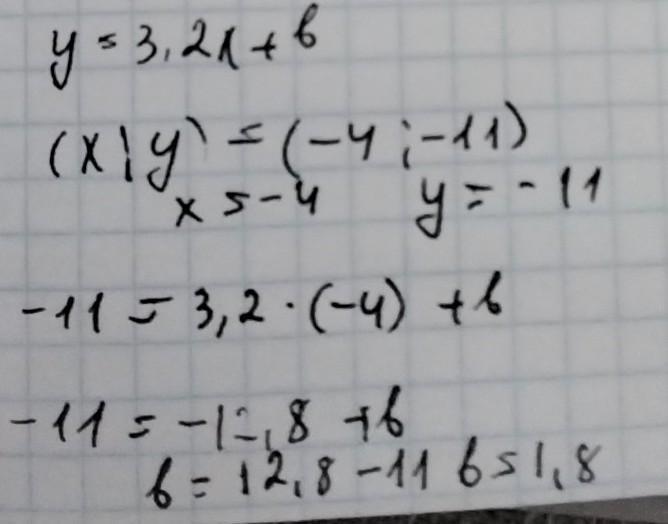 y = 3,2x + b
(x; y) = (-4; -11)
x = -4 y = -11
-11 = 3,2 · (-4) + b
-11 = -12,8 + b
b = 12,8 - 11 b = 1,8